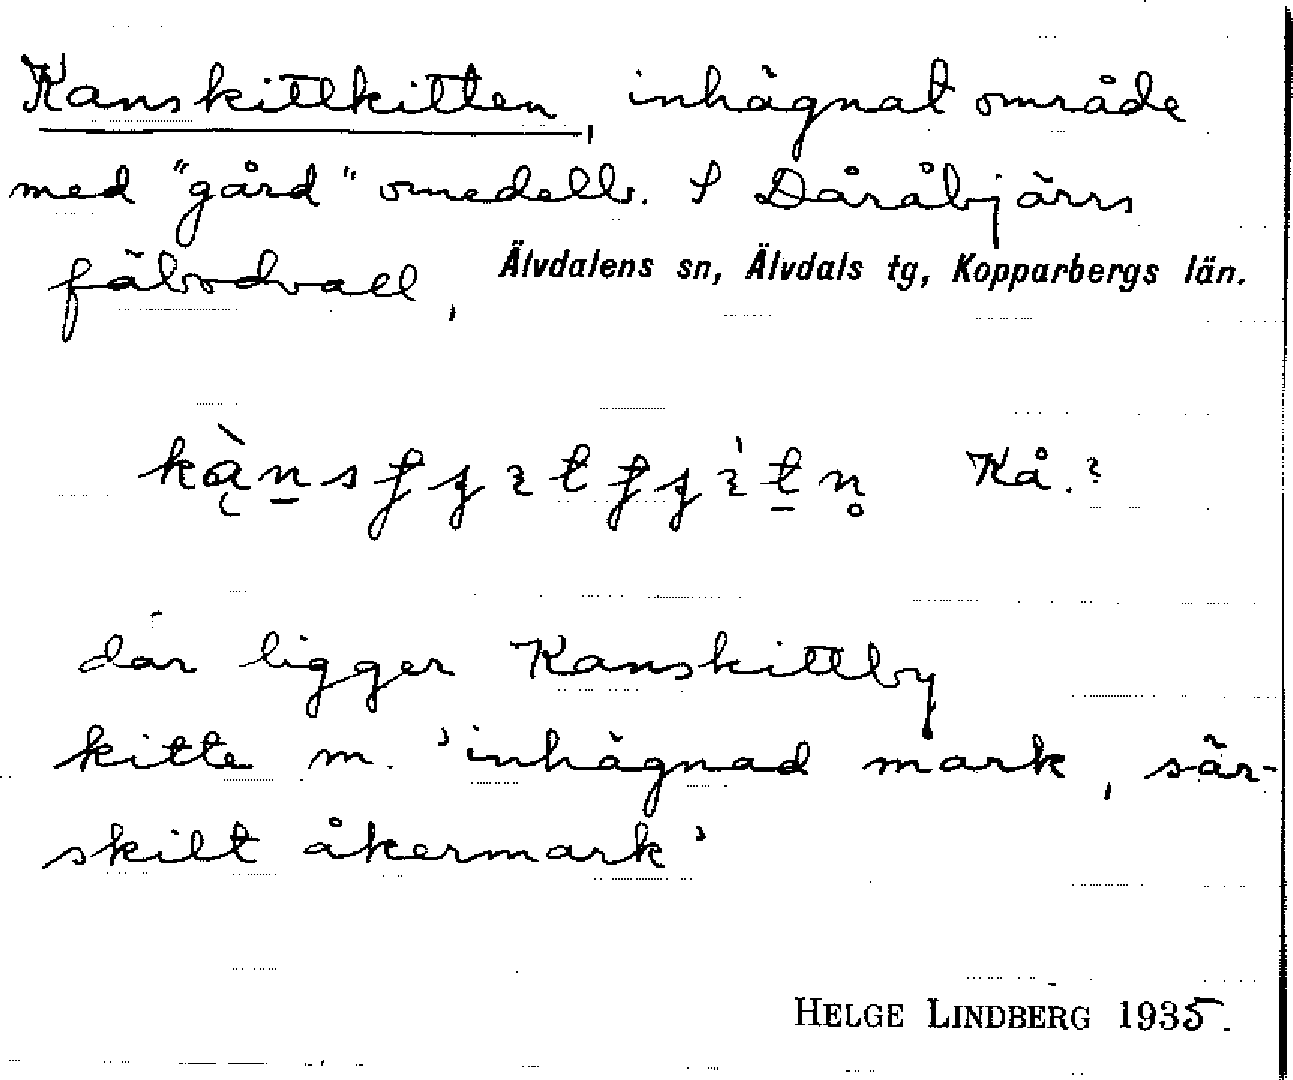 Kanskittkitten, inhägnat område
med "gård" omedelb. S Dåråbjärrs
fäbodvall, Älvdalens sn, Älvdals tg, Kopparbergs län.
Kå.?
där ligger Kanskittby
kitte m. 'inhägnad mark, sär-
skilt åkermark'
HELGE LINDBERG 1935.